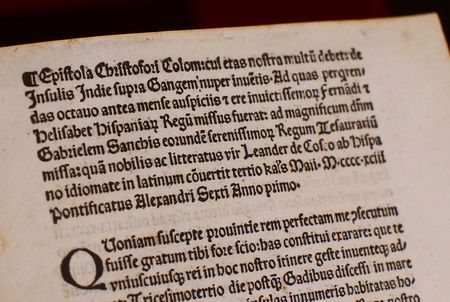 ¶Epistola Christofori Colom: cui etas nostra multũ debet: de
Insulis Indie supra Gangem nuper inuẽtis. Ad quas perqren-
das octauo antea mense auspiciis ⁊ ere inuictissemoꝝ Fernãdi ⁊
Helisabet Hispaniaꝝ Regũ missus fuerat: ad magnificum dñm
Gabrielem Sanchis eorundẽ serenissimoꝝ Regum Tesaurariũ
missa: quã nobilis ac litteratus vir Leander de Cosco ab Hispa
no idiomate in latinum cõuertit tertio kal's Maii. M.cccc.xciii
Pontificatus Alexandri Sexti Anno primo.
Quoniam suscepte prouintie rem perfectam me ꝯsecutum
fuisse gratum tibi fore scio: has constitui exarare: que te
vniuscuiusqꝫ rei in hoc nostro itinere geste inuenteqꝫ ad-
Tricesimotertio die postqꝫ Gadibus discessi in mare
insulas inueni innumeris habitatas ho-